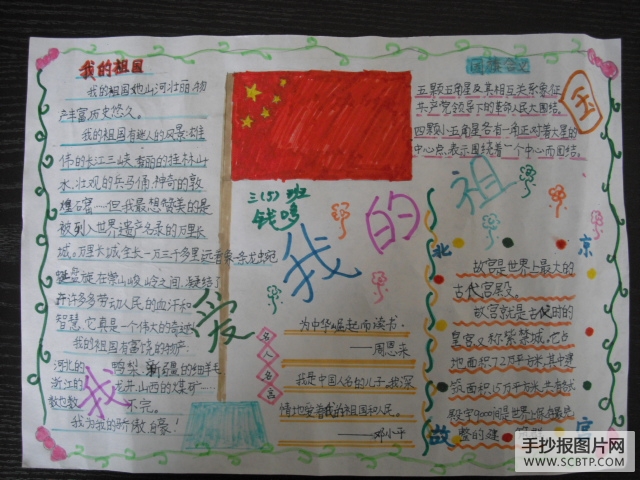 我的祖国
我的祖国她山河壮丽,物
产丰富历史悠久。
我的祖国有迷人的风景:雄
伟的长江三峡 秀丽的桂林山
水,壮观的兵马俑,神奇的敦
煌石窟……但我最想赞美的是
被列入世界遗产名录的万里长
城。万里长城,全长一万三千多里,远看象一条龙蜿
蜒盘旋在崇山峻岭之间,凝结了
许许多多劳动人民的血汗和
智慧,它真是一个伟大的奇迹
我的祖国有富饶的物产:
河北的 鸭梨、新疆的细羊毛
浙江的 龙井,山西的煤矿……
数也数 不完。
我为我的祖骄傲自豪!
我爱我的祖国
三(5)班
钱鸣
名人名言
为中华崛起而读书.
——周恩来
我是中国人名的儿子,我深
情地爱着我的祖国和人民。
——邓小平
五颗五角星及其相互关系象征
共产党领导下的革命人民大团结。
四颗小五角星各有一角正对着大星的
中心点,表示围绕着一个中心而团结。
北京
故宫
故宫是世界上最大的
古代宫殿。
故宫就是古代时的
皇宫又称紫禁城,它占
地面积72万平方米,其中建
筑面积15万平方米,共有各式
殿宇9000间是世界上保存最完
整的建
手抄报图片网
WWW.SCBTP.COM